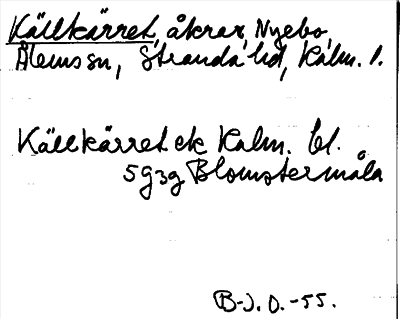 Källkärret, åkrar, Nyebo,
Ålems sn, Stranda hd, Kalm. l.
Källkärret ek Kalm. bl.
5g3g Blomstermåla
B-J. O. -55.